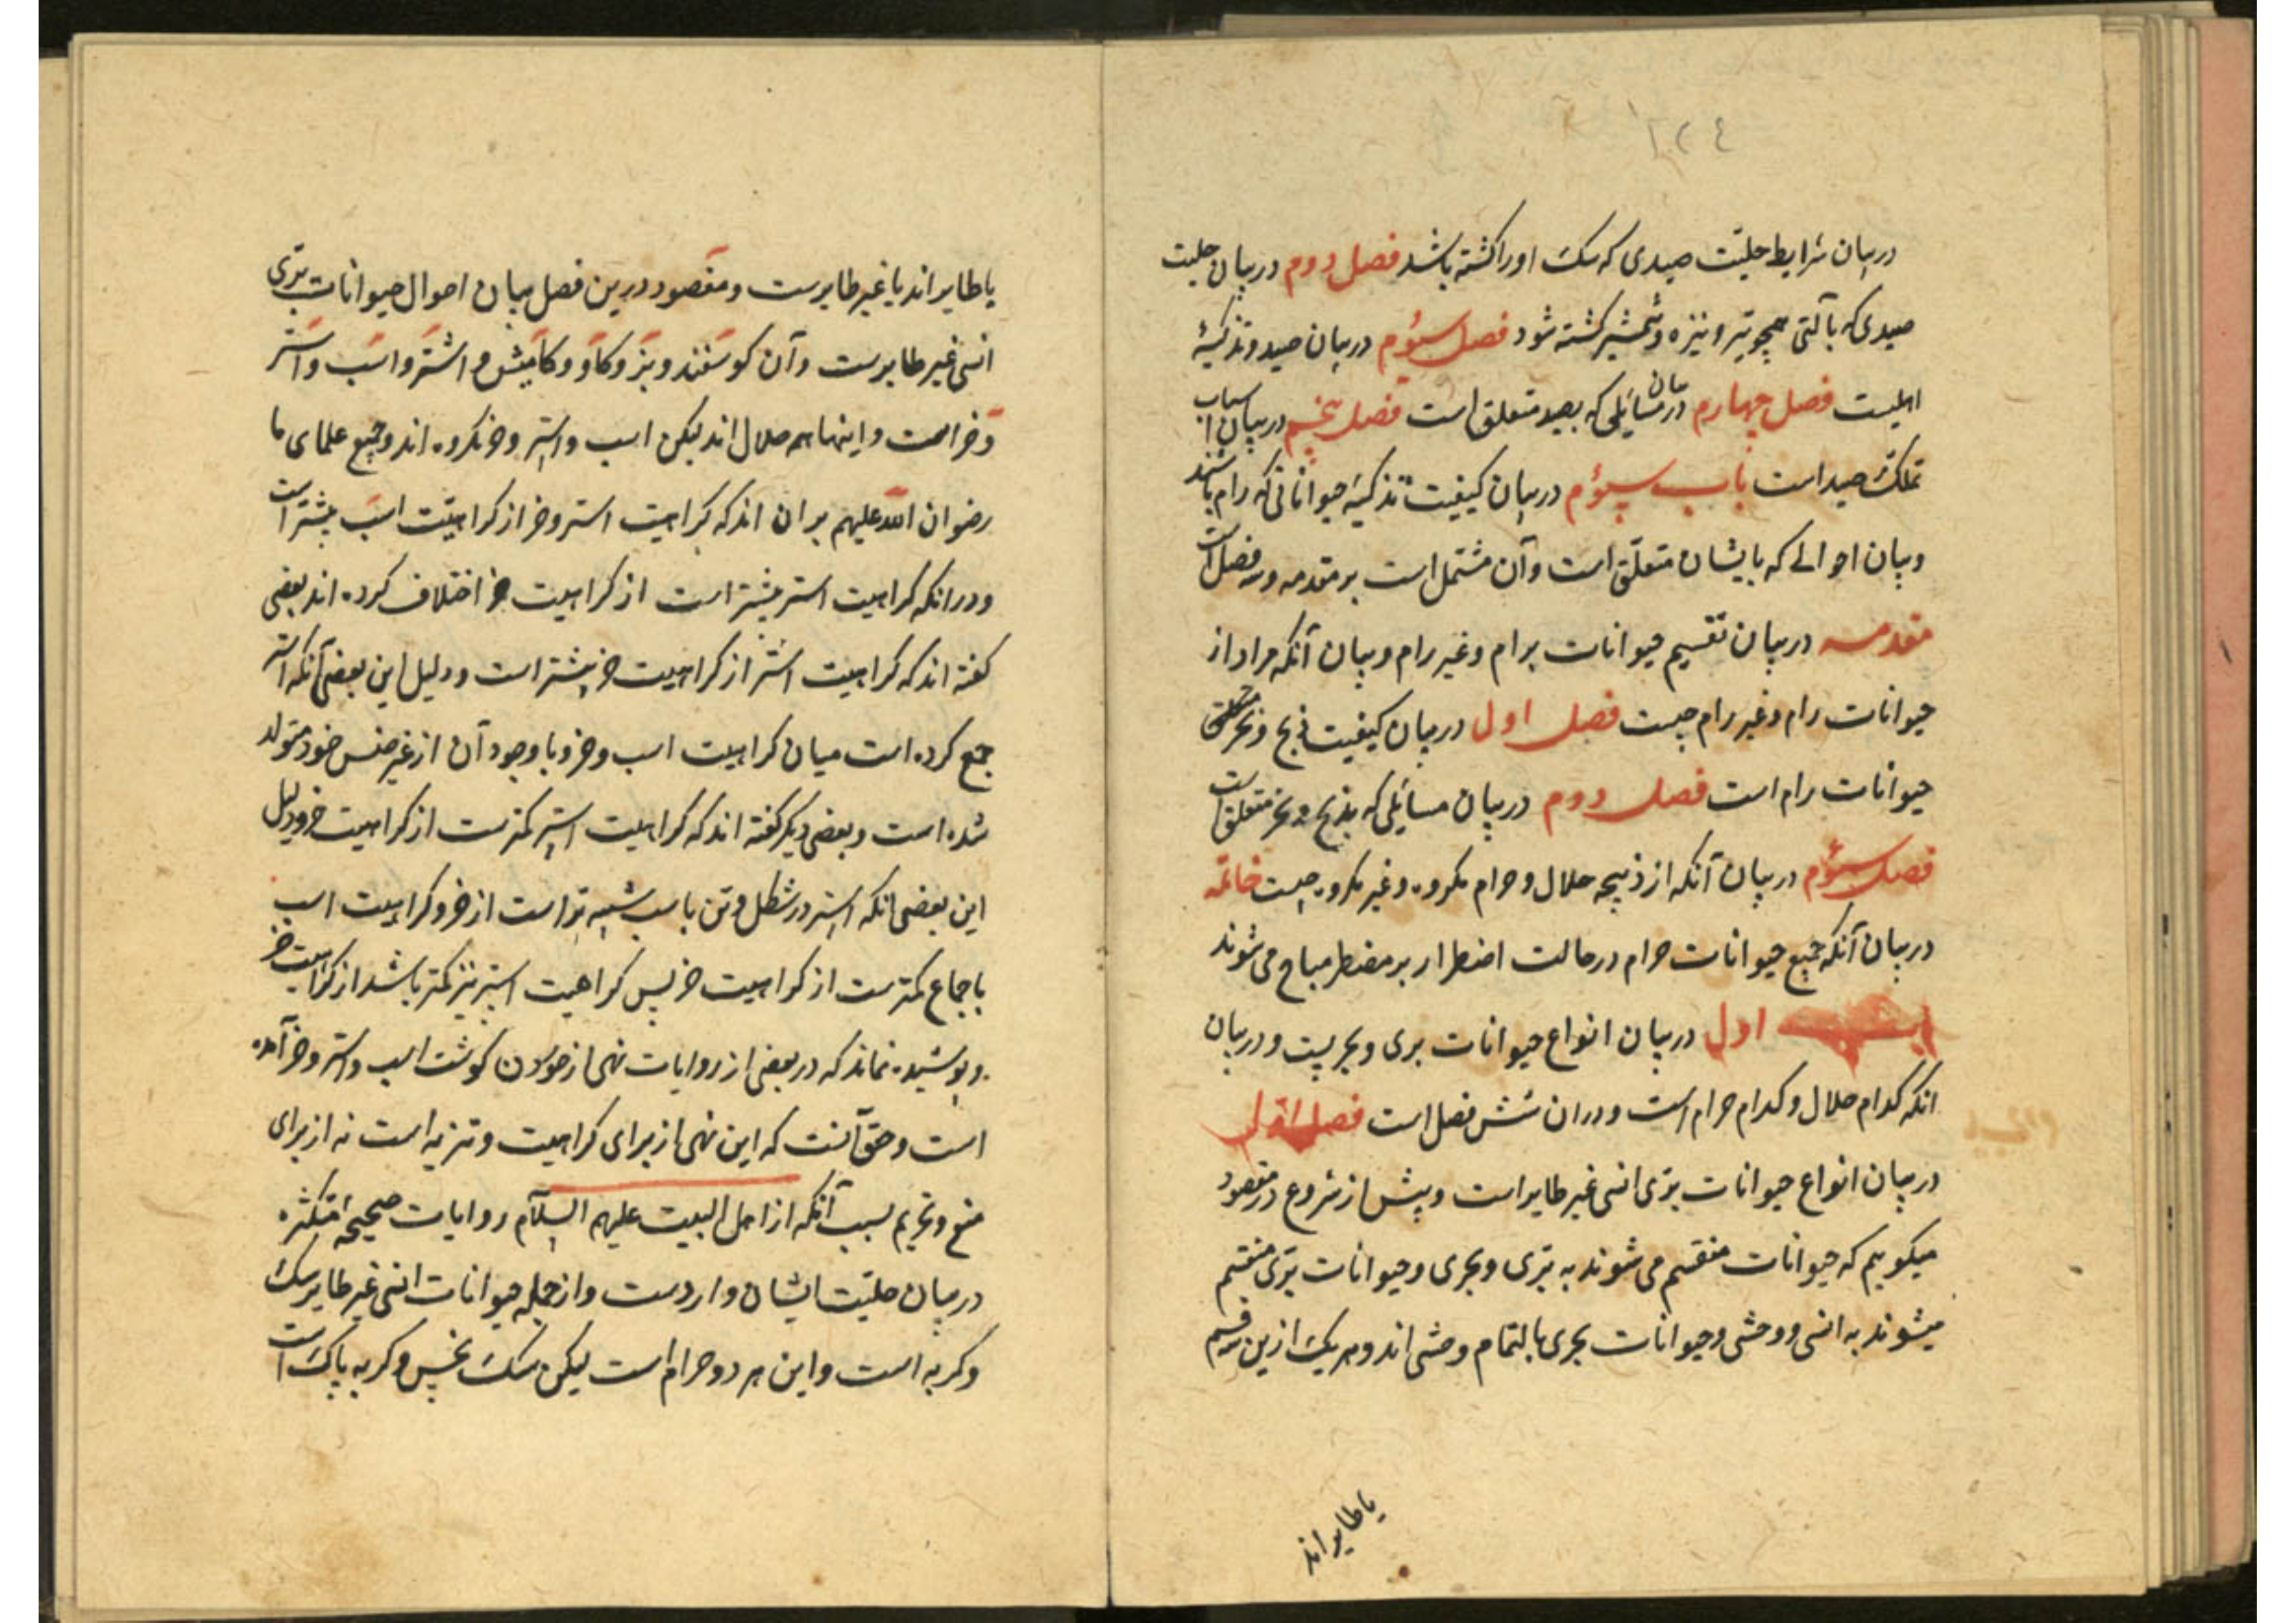 ١٢٤
در بیان شرایط حلیّت صیدی که سک او را کشته باشد فصل دوم در بیان حلیت
صیدی که بآلتی همچو تیر و نیزه و شمشیر کشته شود فصل سیوم در بیان صید و تذکیهٔ
اهلیست فصل چهارم در بیان مسائلی که بصید متعلق است فصل پنجم در بیان اسباب
تملک صید است باب سیوم در بیان کیفیت تذکیهٔ حیواناتی که رام باشند
و بیان احوالی که بایشان متعلّق است و آن مشتمل است بر مقدمه و سه فصل است
مقدمه در بیان تقسیم حیوانات برام و غیر رام و بیان آنکه مراد از
حیوانات رام و غیر رام چیست فصل اول در بیان کیفیت ذبح و نحر
حیوانات رام است فصل دوم در بیان مسائلی که بذبح و نحر متعلق است
فصل سیوم در بیان آنکه از ذبیحه حلال و حرام مکروه و غیر مکروه چیست خاتمه
در بیان آنکه جمیع حیوانات حرام در حالت اضطرار بر مضطر مباح می شوند
اول در بیان انواع حیوانات بری و بحریست و در بیان
انکه کدام حلال و کدام حرام است و در ان شش فصل است فصل اول
در بیان انواع حیوانات برّی انسی غیر طایر است و پیش از شروع در مقصود
میکوییم که حیوانات منقسم می شوند به برّی و بحری و حیوانات برّی منقسم
میشوند به انسی و وحشی و حیوانات بحری بالتمام وحشی اند و هر یک ازین سه قسم
یا طایر اند
یا طایر اند یا غیر طایرست و مقصود درین فصل بیان احوال حیوانات برّی
انسی غیر طایرست و آن کوسفند و بز و کاو و کامیش و اشتر و اسب و استر
و خر است و اینها همه حلال اند لیکن اسب و استر و خر مکروه اند و جمیع علمای ما
رضوان الله علیهم بر ان اند که کراهیت استر و خر از کراهیّت اسب بیشتر است
و در انکه کراهیت استر بیشتر است از کراهیت خر اختلاف کرده اند بعضی
کفته اند که کراهیت استر از کراهیت خر بیشتر است و دلیل این بعضی آنکه استر
جمع کرده است میان کراهیت اسب و خر و با وجود آن از غیر جنس خود متولد
شده است و بعضی دیکر کفته اند که کراهیت استر کمترست از کراهیت خر و دلیل
این بعضی انکه استر در شکل و تن باسب شبیه تر است از خر و کراهیت اسب
باجماع کمترست از کراهیت خر پس کراهیت استر نیز کمتر باشد از کراهیت خر
و پوشیده نماند که در بعضی از روایات نهی از خوردن کوشت اسب و استر و خر آمده
است و حق آنست که این نهی از برای کراهیت و تنزیه است نه از برای
منع و تحریم بسبب آنکه از اهل البیت علیهم السّلام روایات صحیحهٔ متکثره
در بیان حلیّت ایشان واردست و از جمله حیوانات انسی غیر طایر سک
و کربه است و این هر دو حرام است لیکن سک نجس و کربه پاک است